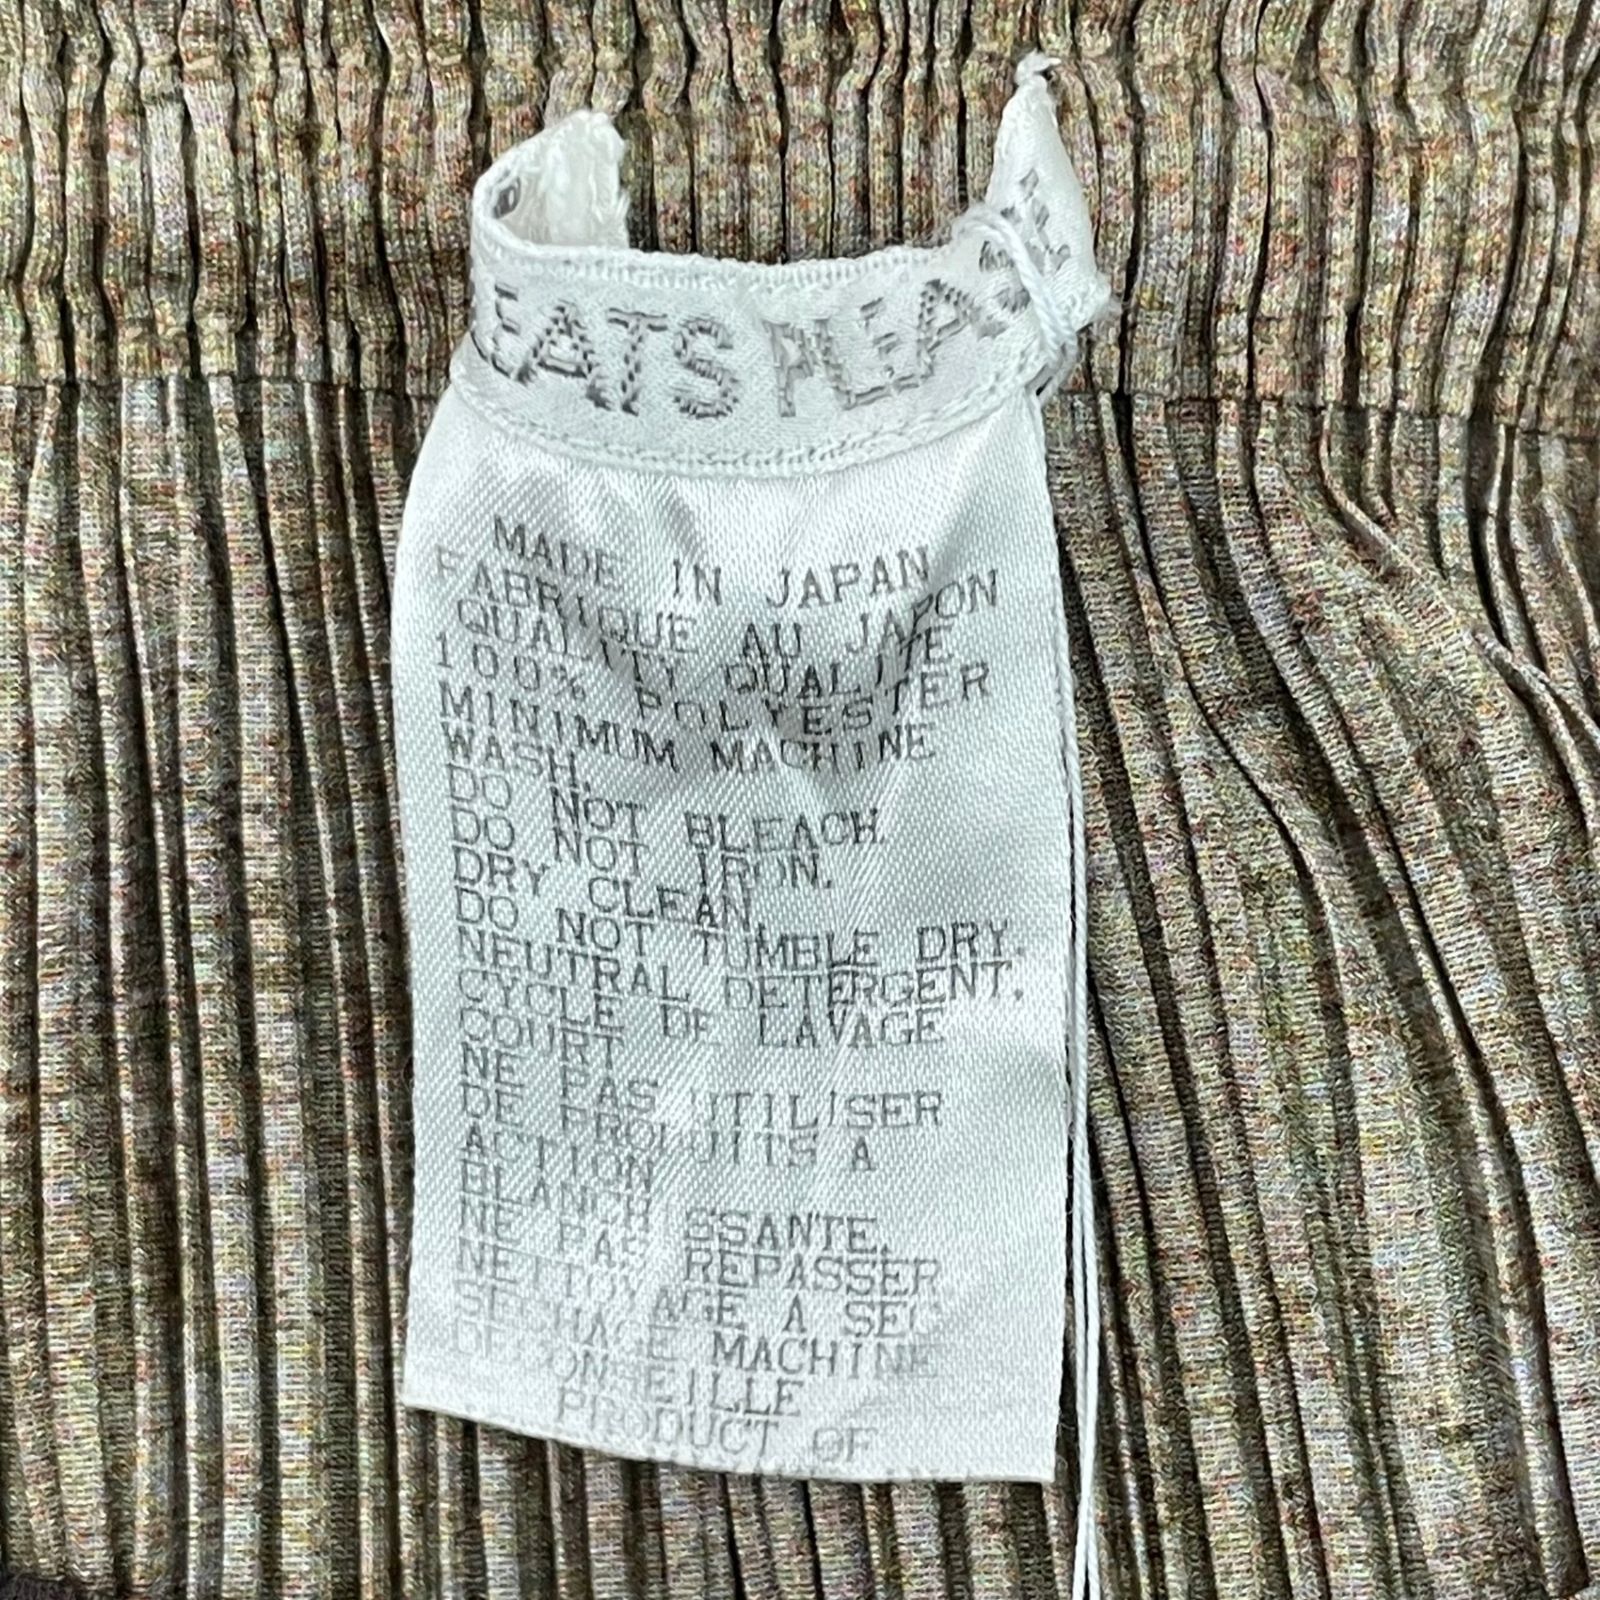 EATS PLEA
MADE IN JAPAN
FABRIQUE AU JAPON
QUALITY QUALITE
100% POLYESTER
MINIMUM MACHINE
WASH.
DO NOT BLEACH.
DO NOT IRON.
DRY CLEAN
DO NOT TUMBLE DRY.
NEUTRAL DETERGENT.
CYCLE DE LAVAGE
COURT
NE PAS UTILISER
DE PRODUITS A
ACTION
BLANCHISSANTE.
NE PAS REPASSER
NETTOYAGE A SEC
SECHAGE MACHINE
DECONSEILLE
PRODUCT OF